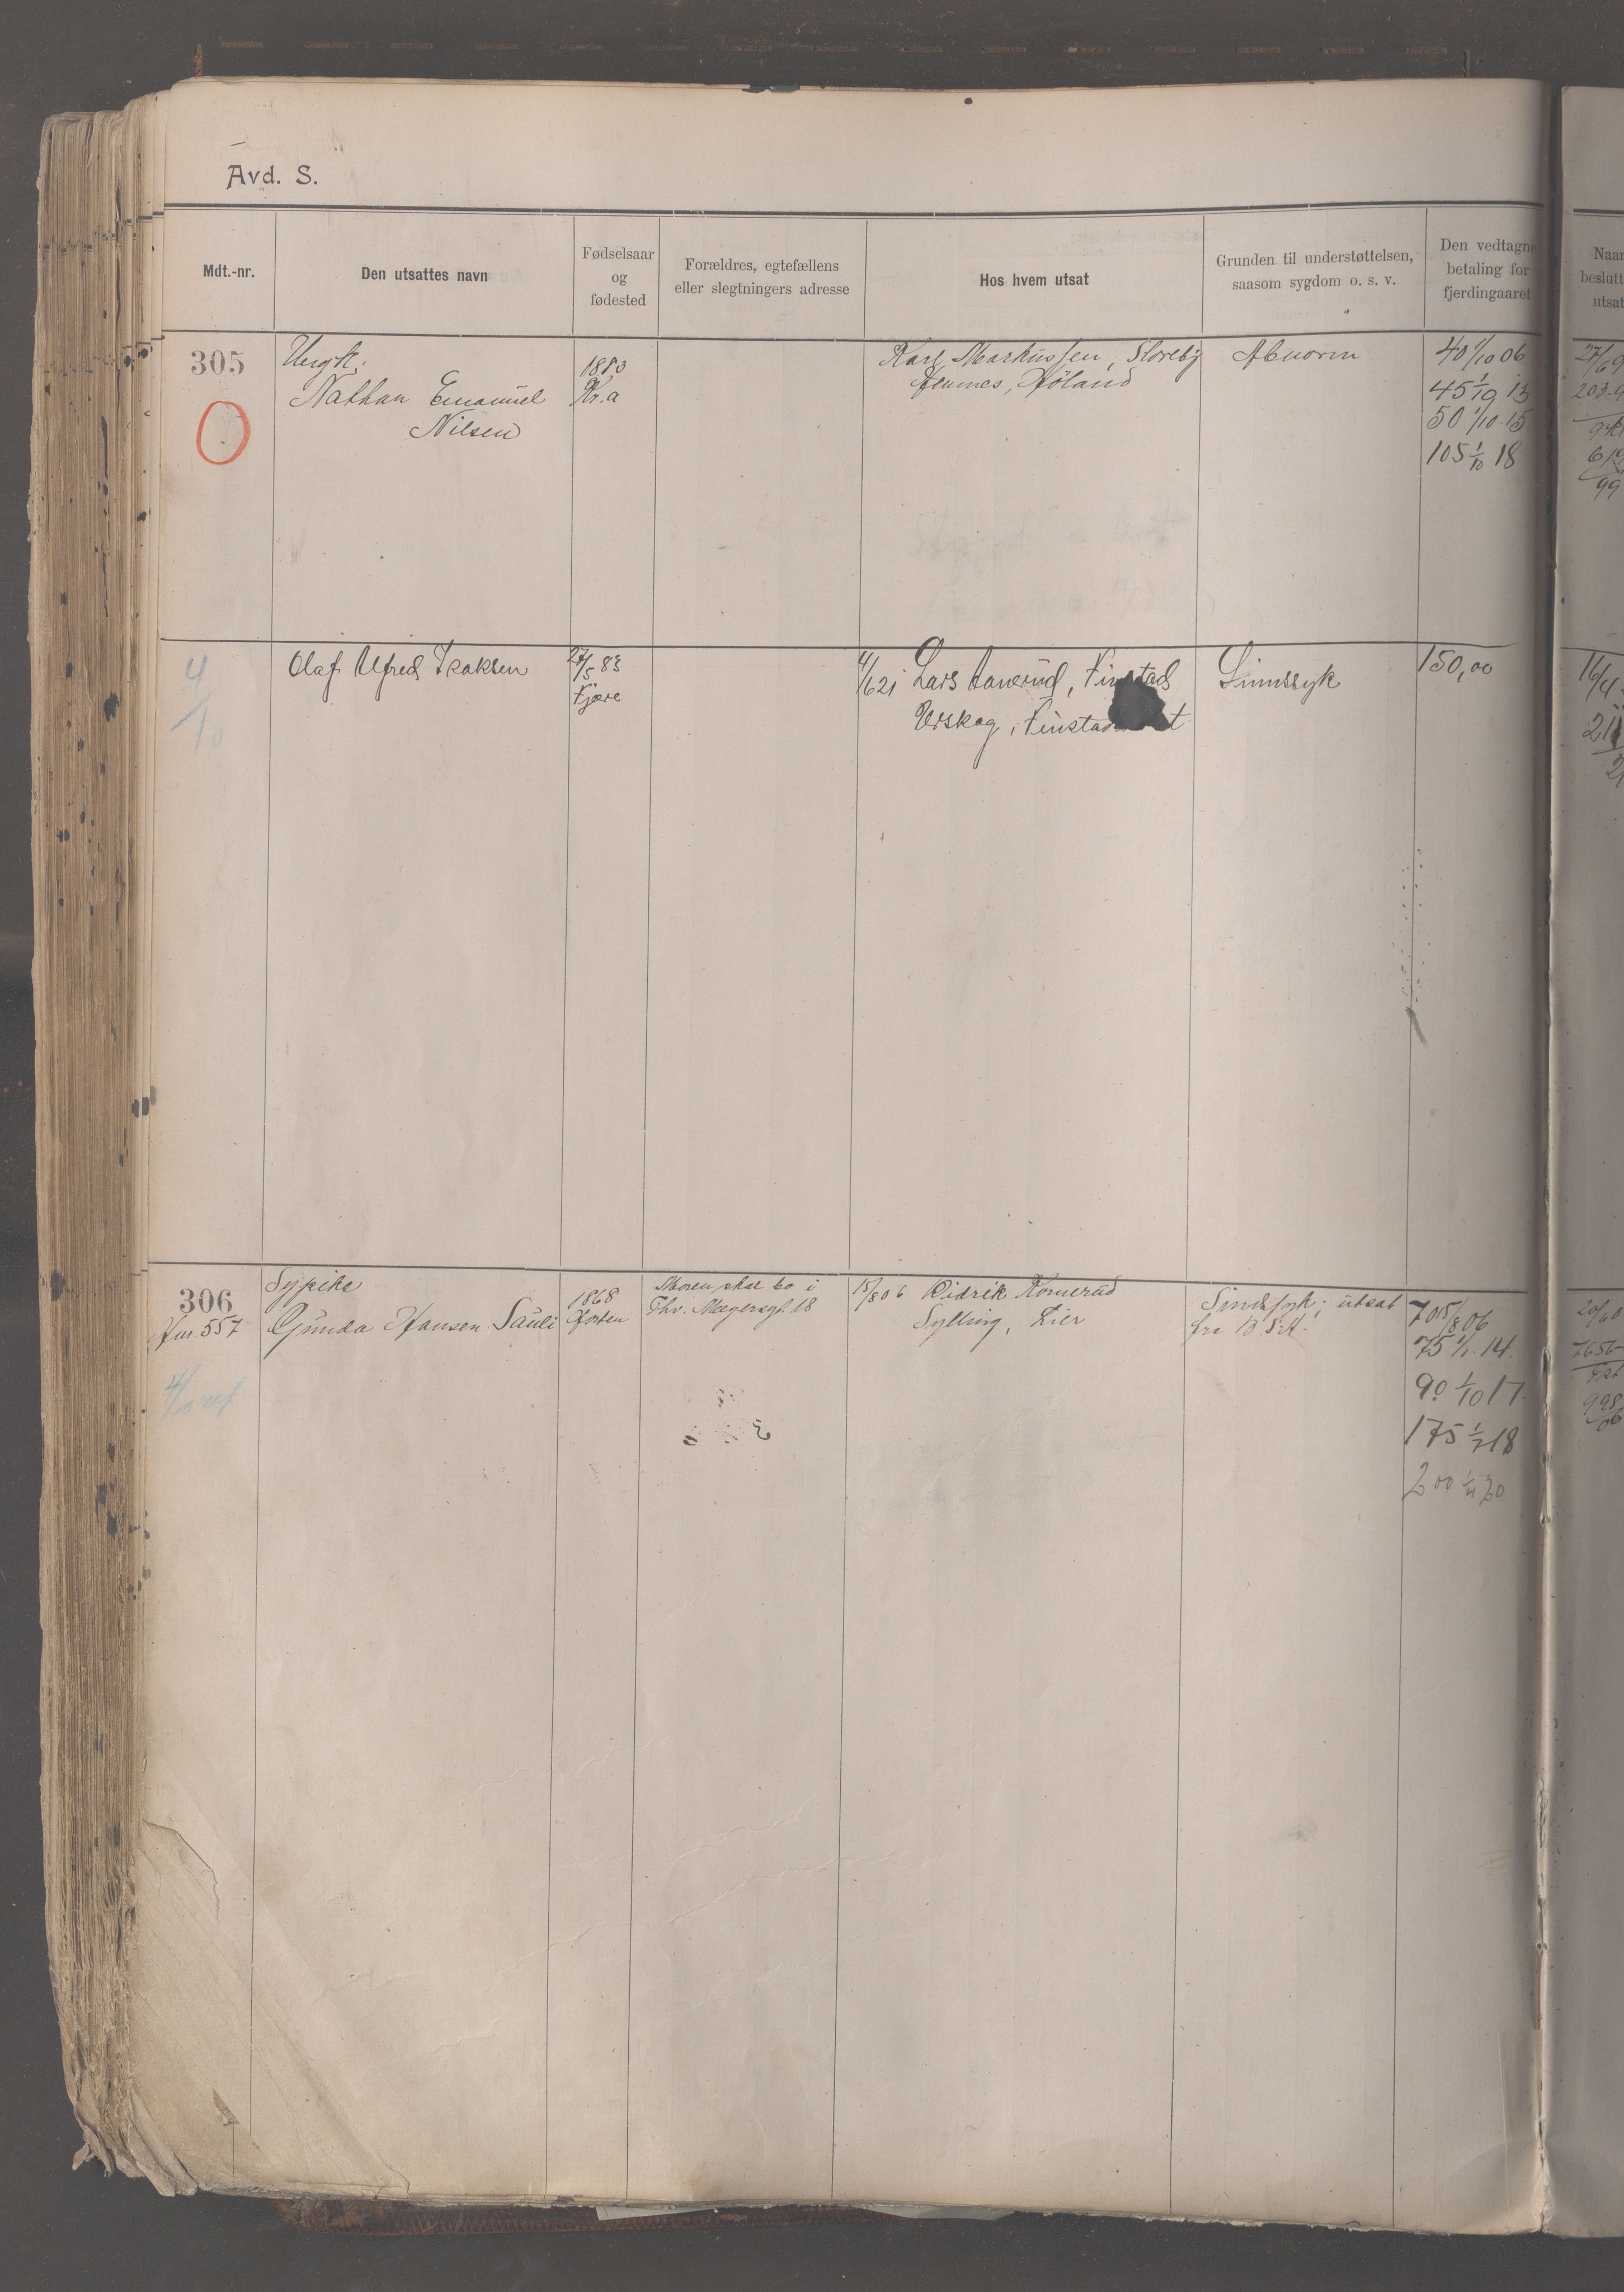 Avd. S.
Mdt.-nr.
Den utsattes navn
Fødselsaar
og
fødested
Forældres, egtefællens
eller slegtningers adresse
Hos hvem utsat
Grunden til understøttelsen,
saasom sygdom o. s. v.
Den vedtagne
betaling for
fjerdingaaret
Naar
beslutt
utsat
305
Ungk.
Nathan Emanuel
Nilsen
1883
Kr.a
Karl Markussen, Sloreby
Hemnes, Høland
Abnorm
40 1/10 06
45 1/10 13
50 1/10 15
105 1/10 18
4/10
Olaf Alfred Isaksen
27/5 83
Fjære
1/6 21 Lars Aanerud, Finstad
Urskog, Finstad
Sinnssyk
150,00
306
Sypike
Gunda Hansen Sauli
1868
Horten
Moren skal bo i
Thv. Meyersgt. 18
15/8 06 Didrik Kornerud
Sylling, Lier
Sindssyk; utsat
fra
70 15/8 06
75 1/1 14
90 1/10 17
175 1/7 18
200 1/4 20